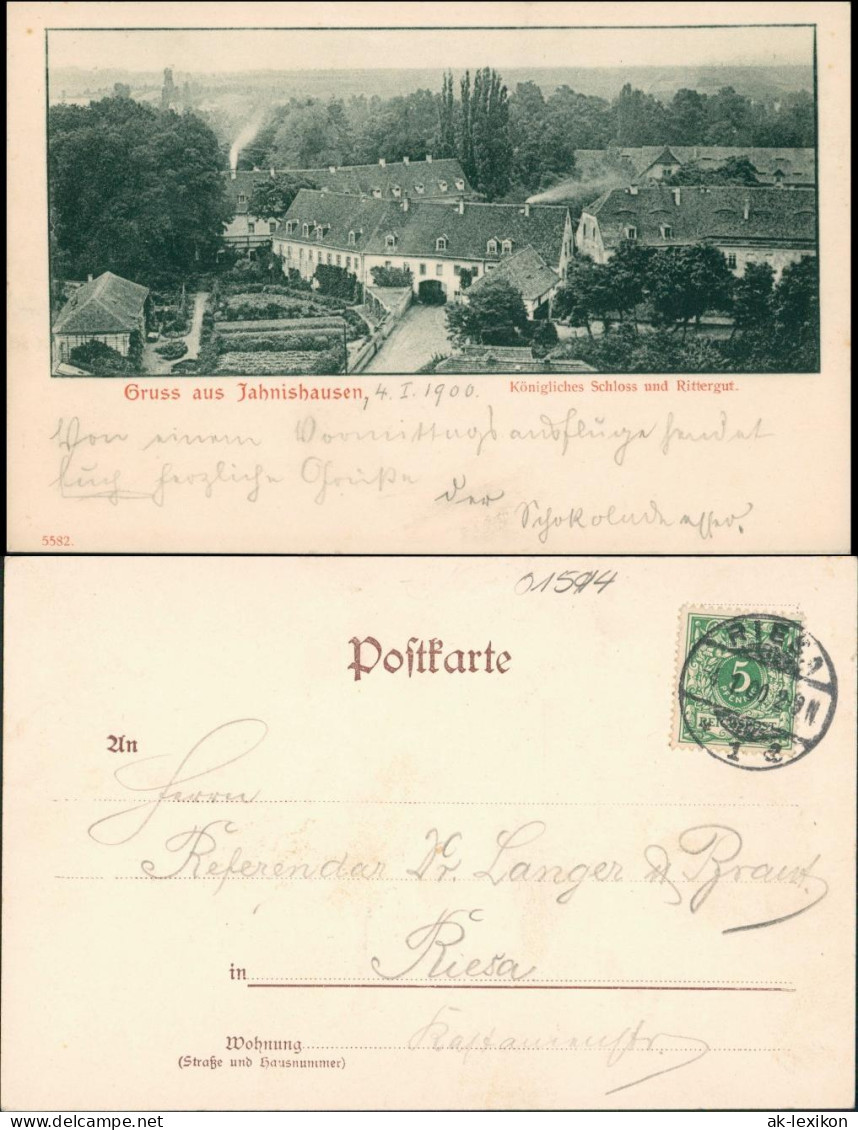 Gruss aus Jahnishausen, 4. I. 1900. Königliches Schloss und Rittergut.
Von einem Vormittagsausfluge sendet
Euch herzliche Grüße
der Schokoladenesser.
5582.
01594
Postkarte
RIESA
5
PFENNIG
REICHSPOST
1
An
Herrn
Referendar Dr. Langer u Braut.
in Riesa
Wohnung Kastanienstr.
(Straße und Hausnummer)
www.ansichtskarten-lexikon.de
ak-lexikon